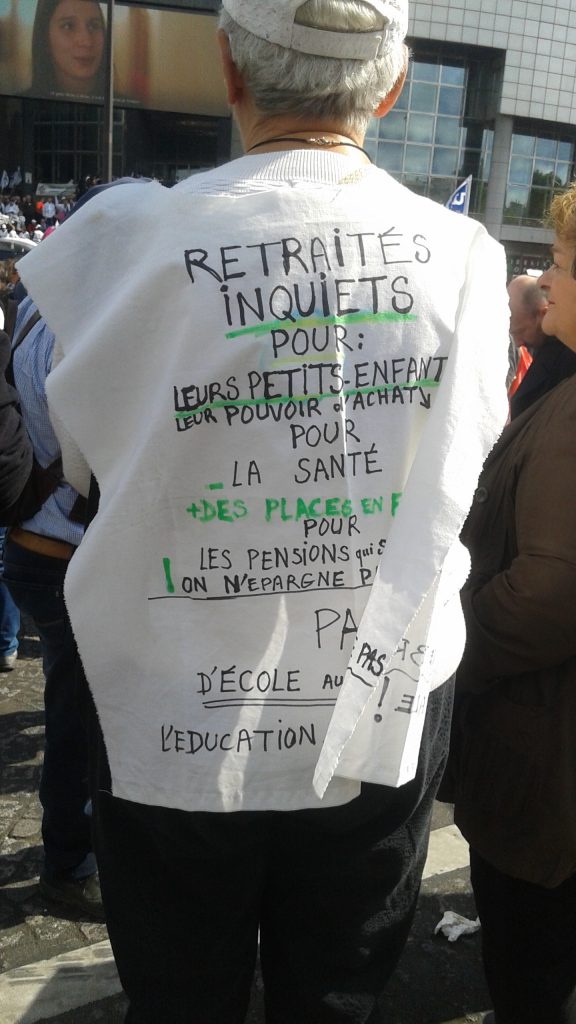 RETRAITÉS
INQUIETS
POUR:
LEURS PETITS-ENFANT
LEUR POUVOIR d'ACHAT
POUR
LA SANTÉ
+DES PLACES EN
POUR
LES PENSIONS qui
! ON N'EPARGNE
D'ÉCOLE AU
PAS
!
L'EDUCATION